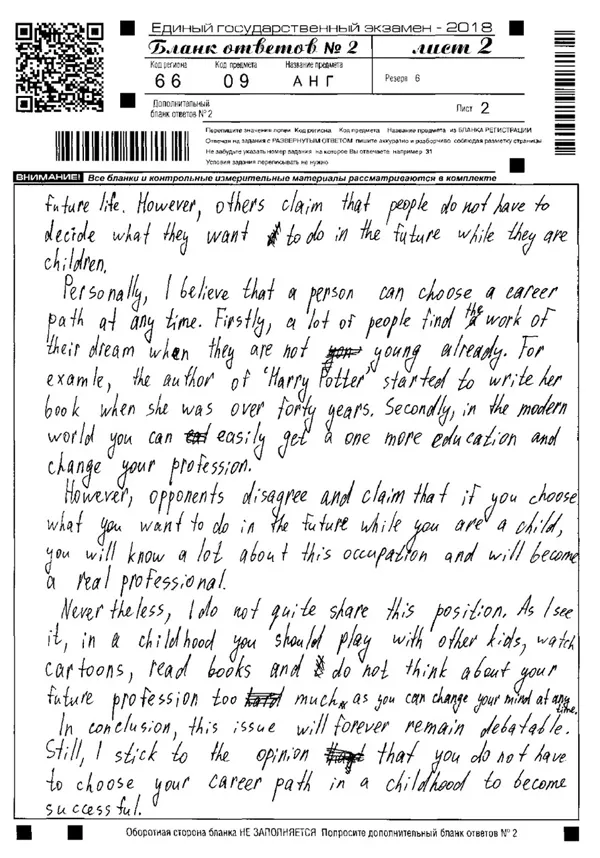 Единый государственный экзамен - 2018
Бланк ответов № 2 лист 2
Код региона Код предмета Название предмета
66 09 АНГ
Резерв 6
Дополнительный
бланк ответов № 2
Лист 2
Перепишите значения полей Код региона Код предмета Название предмета из БЛАНКА РЕГИСТРАЦИИ
Отвечая на задания с РАЗВЕРНУТЫМ ОТВЕТОМ пишите аккуратно и разборчиво соблюдая разметку страницы
Не забудьте указать номер задания на которое Вы отвечаете например 31
Условия задания переписывать не нужно
ВНИМАНИЕ! Все бланки и контрольные измерительные материалы рассматриваются в комплекте
future life. However, others claim that people do not have to
decide what they want to do in the future while they are
children.
Personally, I believe that a person can choose a career
path at any time. Firstly, a lot of people find the work of
their dream when they are not young already. For
examle, the author of 'Harry Potter' started to write her
book when she was over forty years. Secondly, in the modern
world you can easily get a one more education and
change your profession.
However, opponents disagree and claim that if you choose
what you want to do in the future while you are a child,
you will know a lot about this occupation and will become
a real professional.
Never theless, I do not quite share this position. As I see
it, in a childhood you should play with other kids, watch
cartoons, read books and do not think about your
future profession too much, as you can change your mind at any time.
In conclusion, this issue will forever remain debatable.
Still, I stick to the opinion that you do not have
to choose your career path in a childhood to become
successful.
Оборотная сторона бланка НЕ ЗАПОЛНЯЕТСЯ Попросите дополнительный бланк ответов № 2